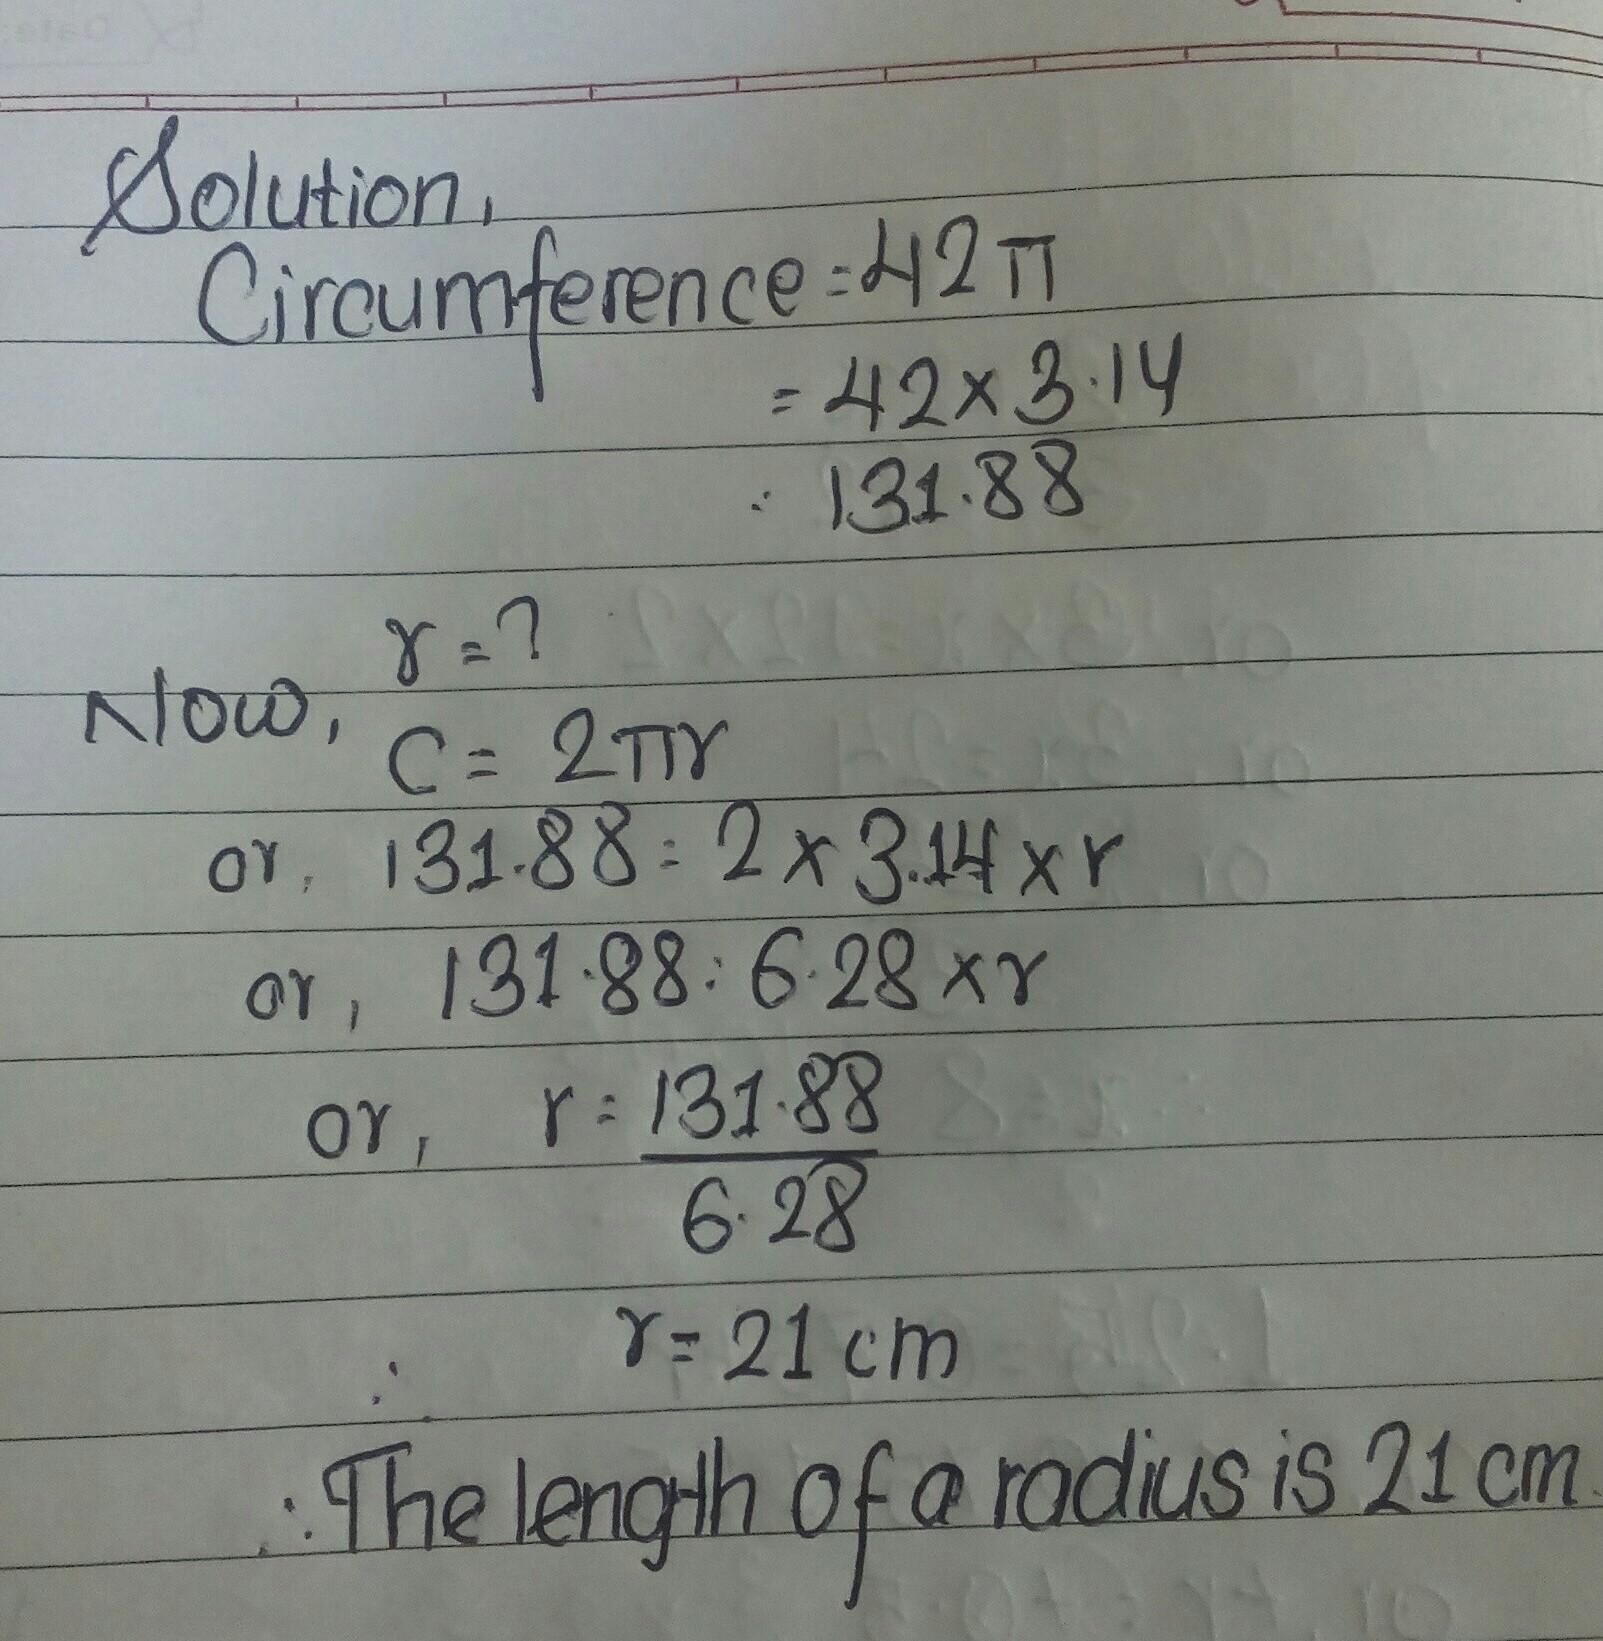 Solution,
Circumference = 42π
= 42 × 3.14
= 131.88
r = ?
Now,
C = 2πr
or, 131.88 = 2 × 3.14 × r
or, 131.88 = 6.28 × r
or, r = 131.88
6.28
∴ r = 21 cm
∴ The length of a radius is 21 cm.